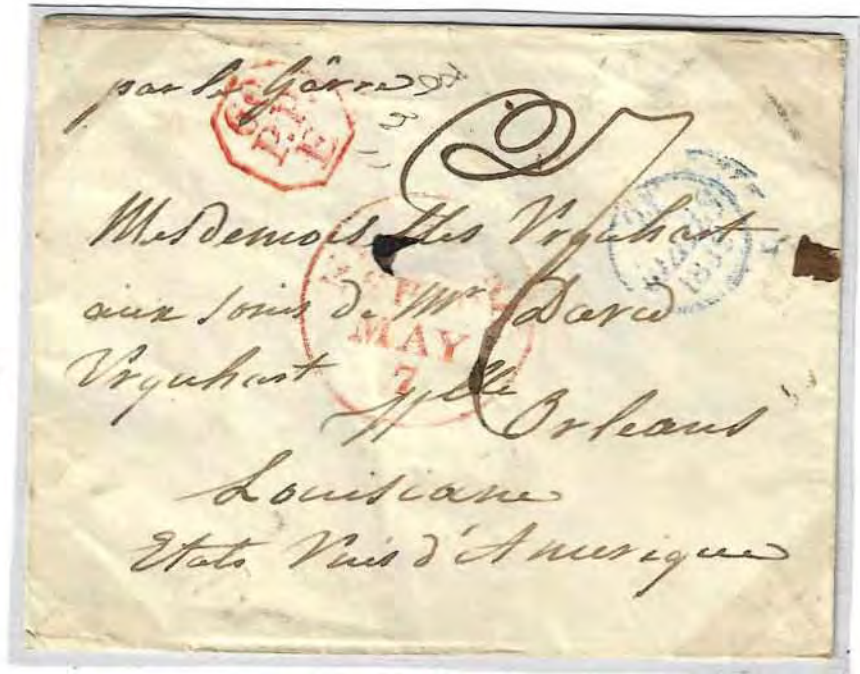 par le Hâvre
P.P.
E
27
Mesdemoiselles Urquhart
aux soins de Mr David
MAY
7
Urquhart
Nlle Orleans
Louisiane
Etats Unis d'Amerique